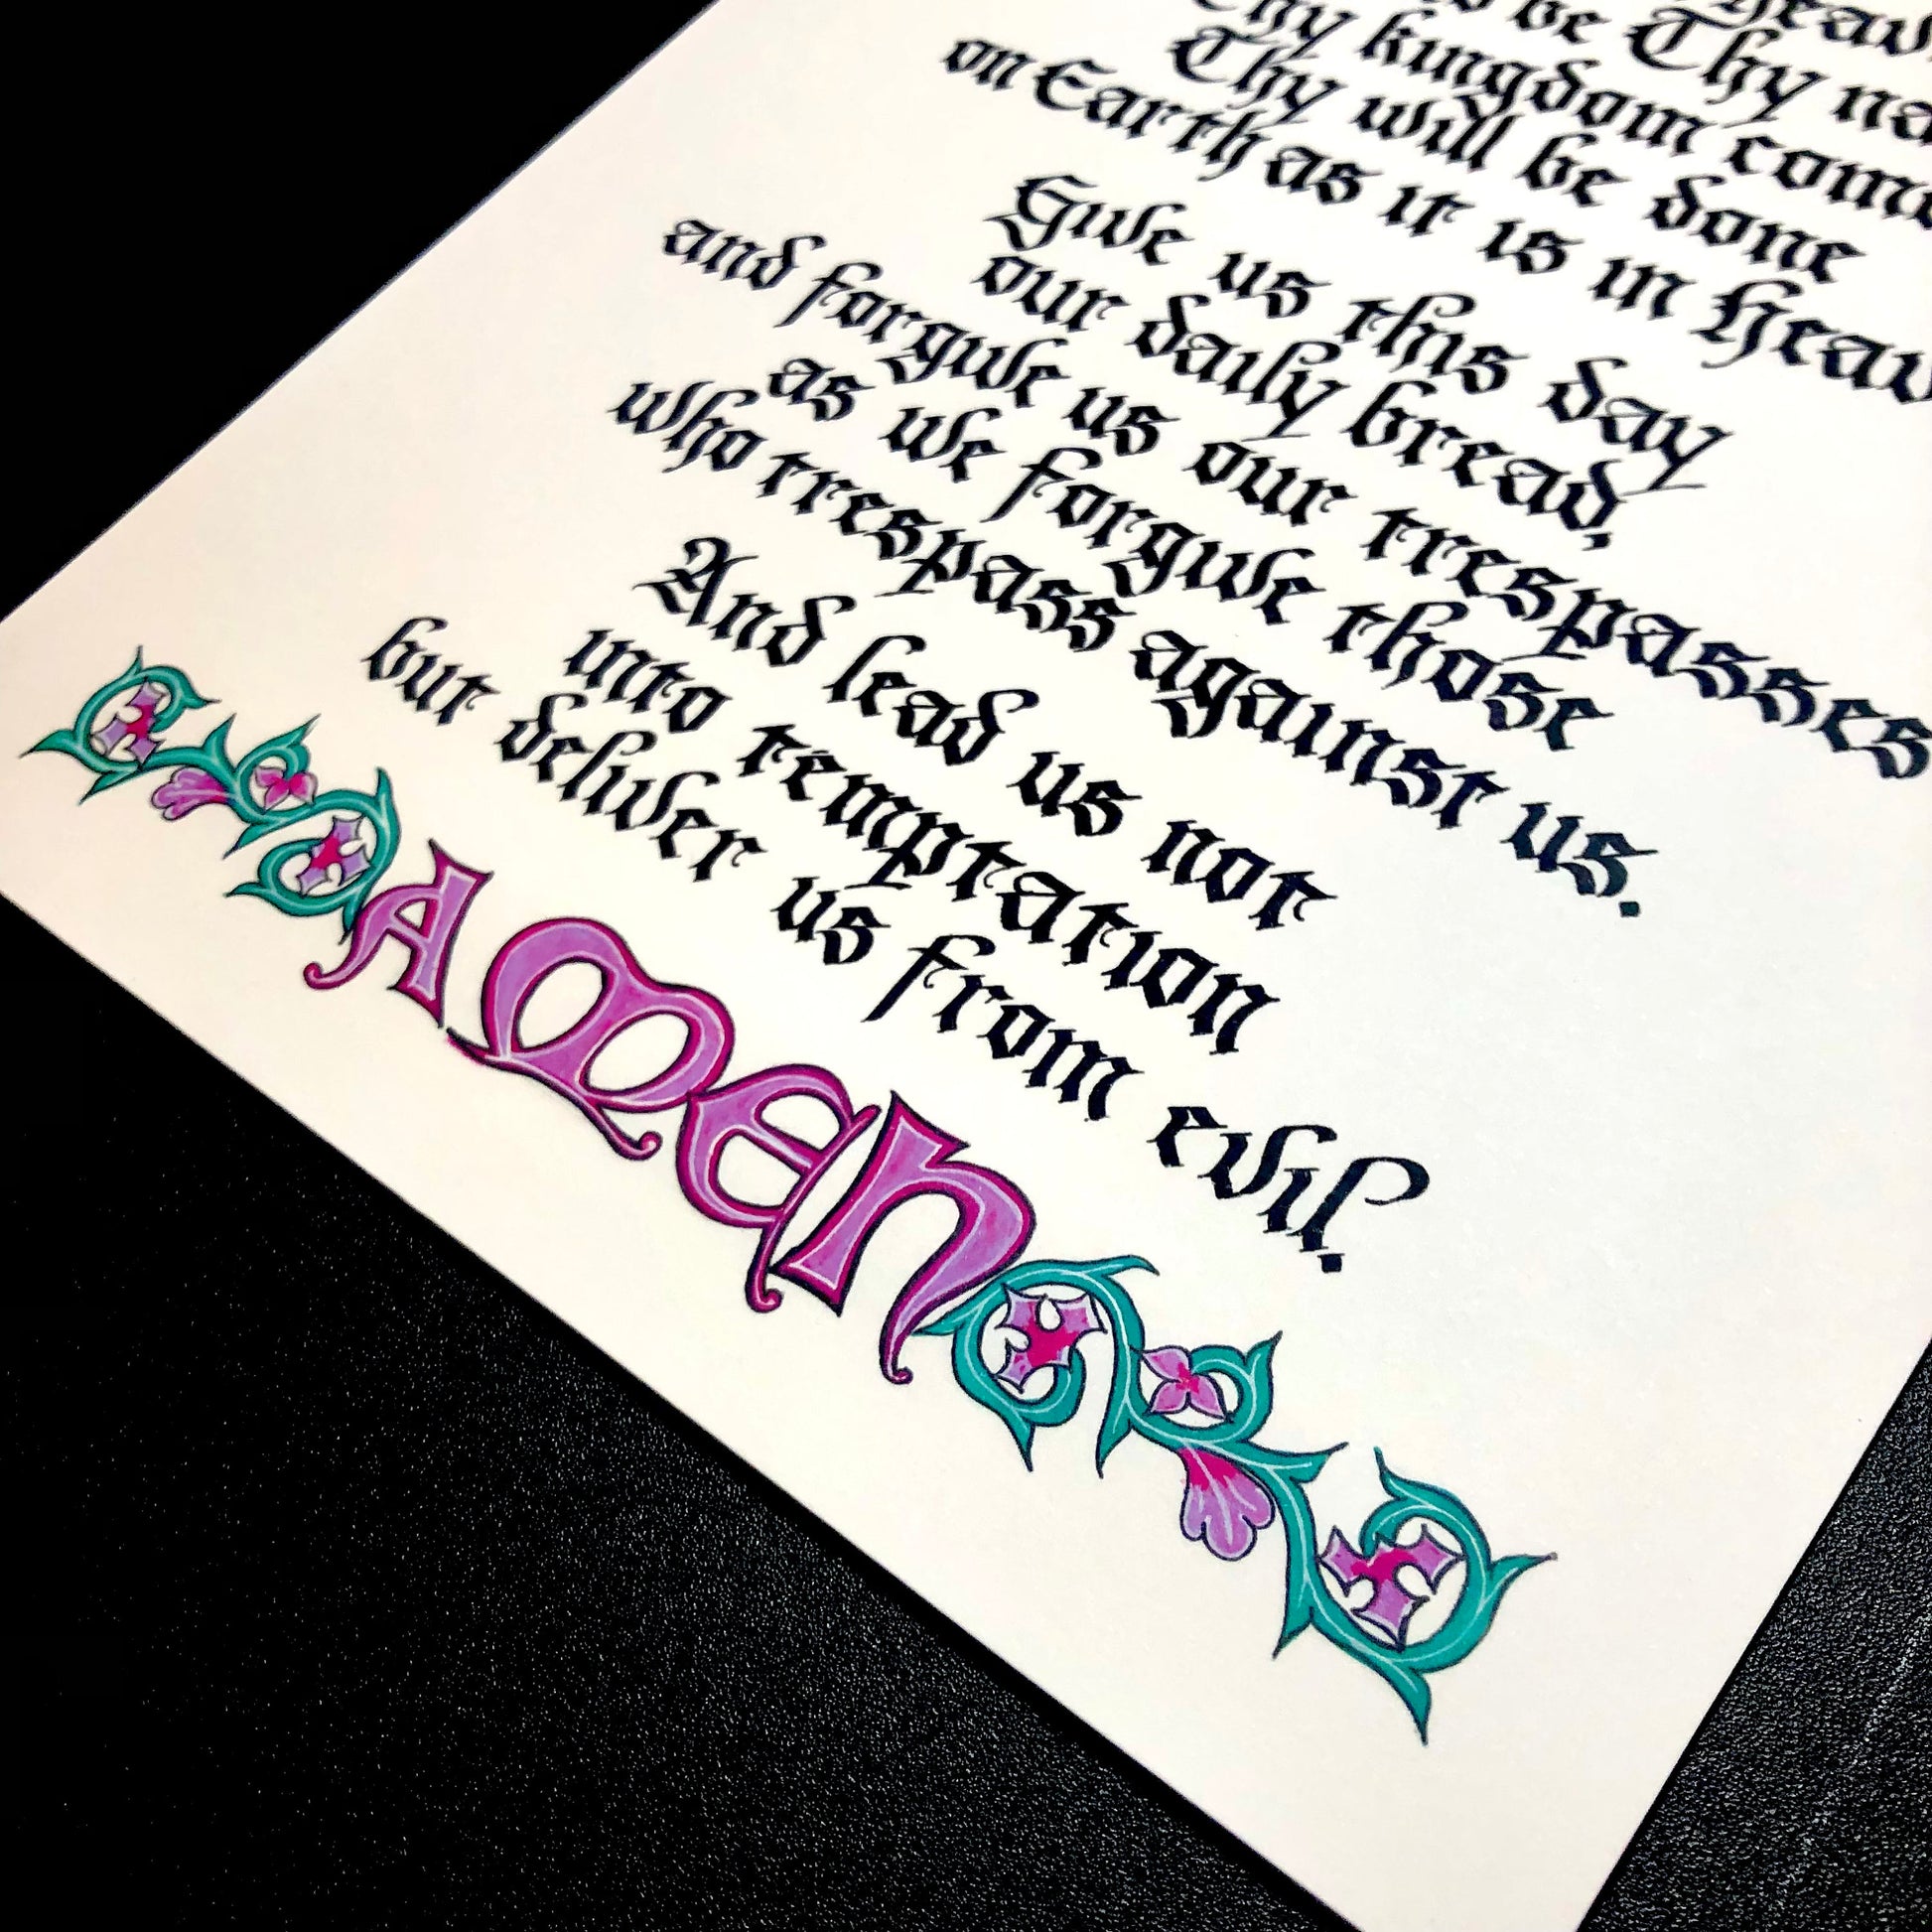 be Thy
Thy kingdom
Thy will be done
on Earth as it is in
Give us this day
our daily bread,
and forgive us our trespasses
as we forgive those
who trespass against us.
And lead us not
into temptation
but deliver us from evil.
AMEN